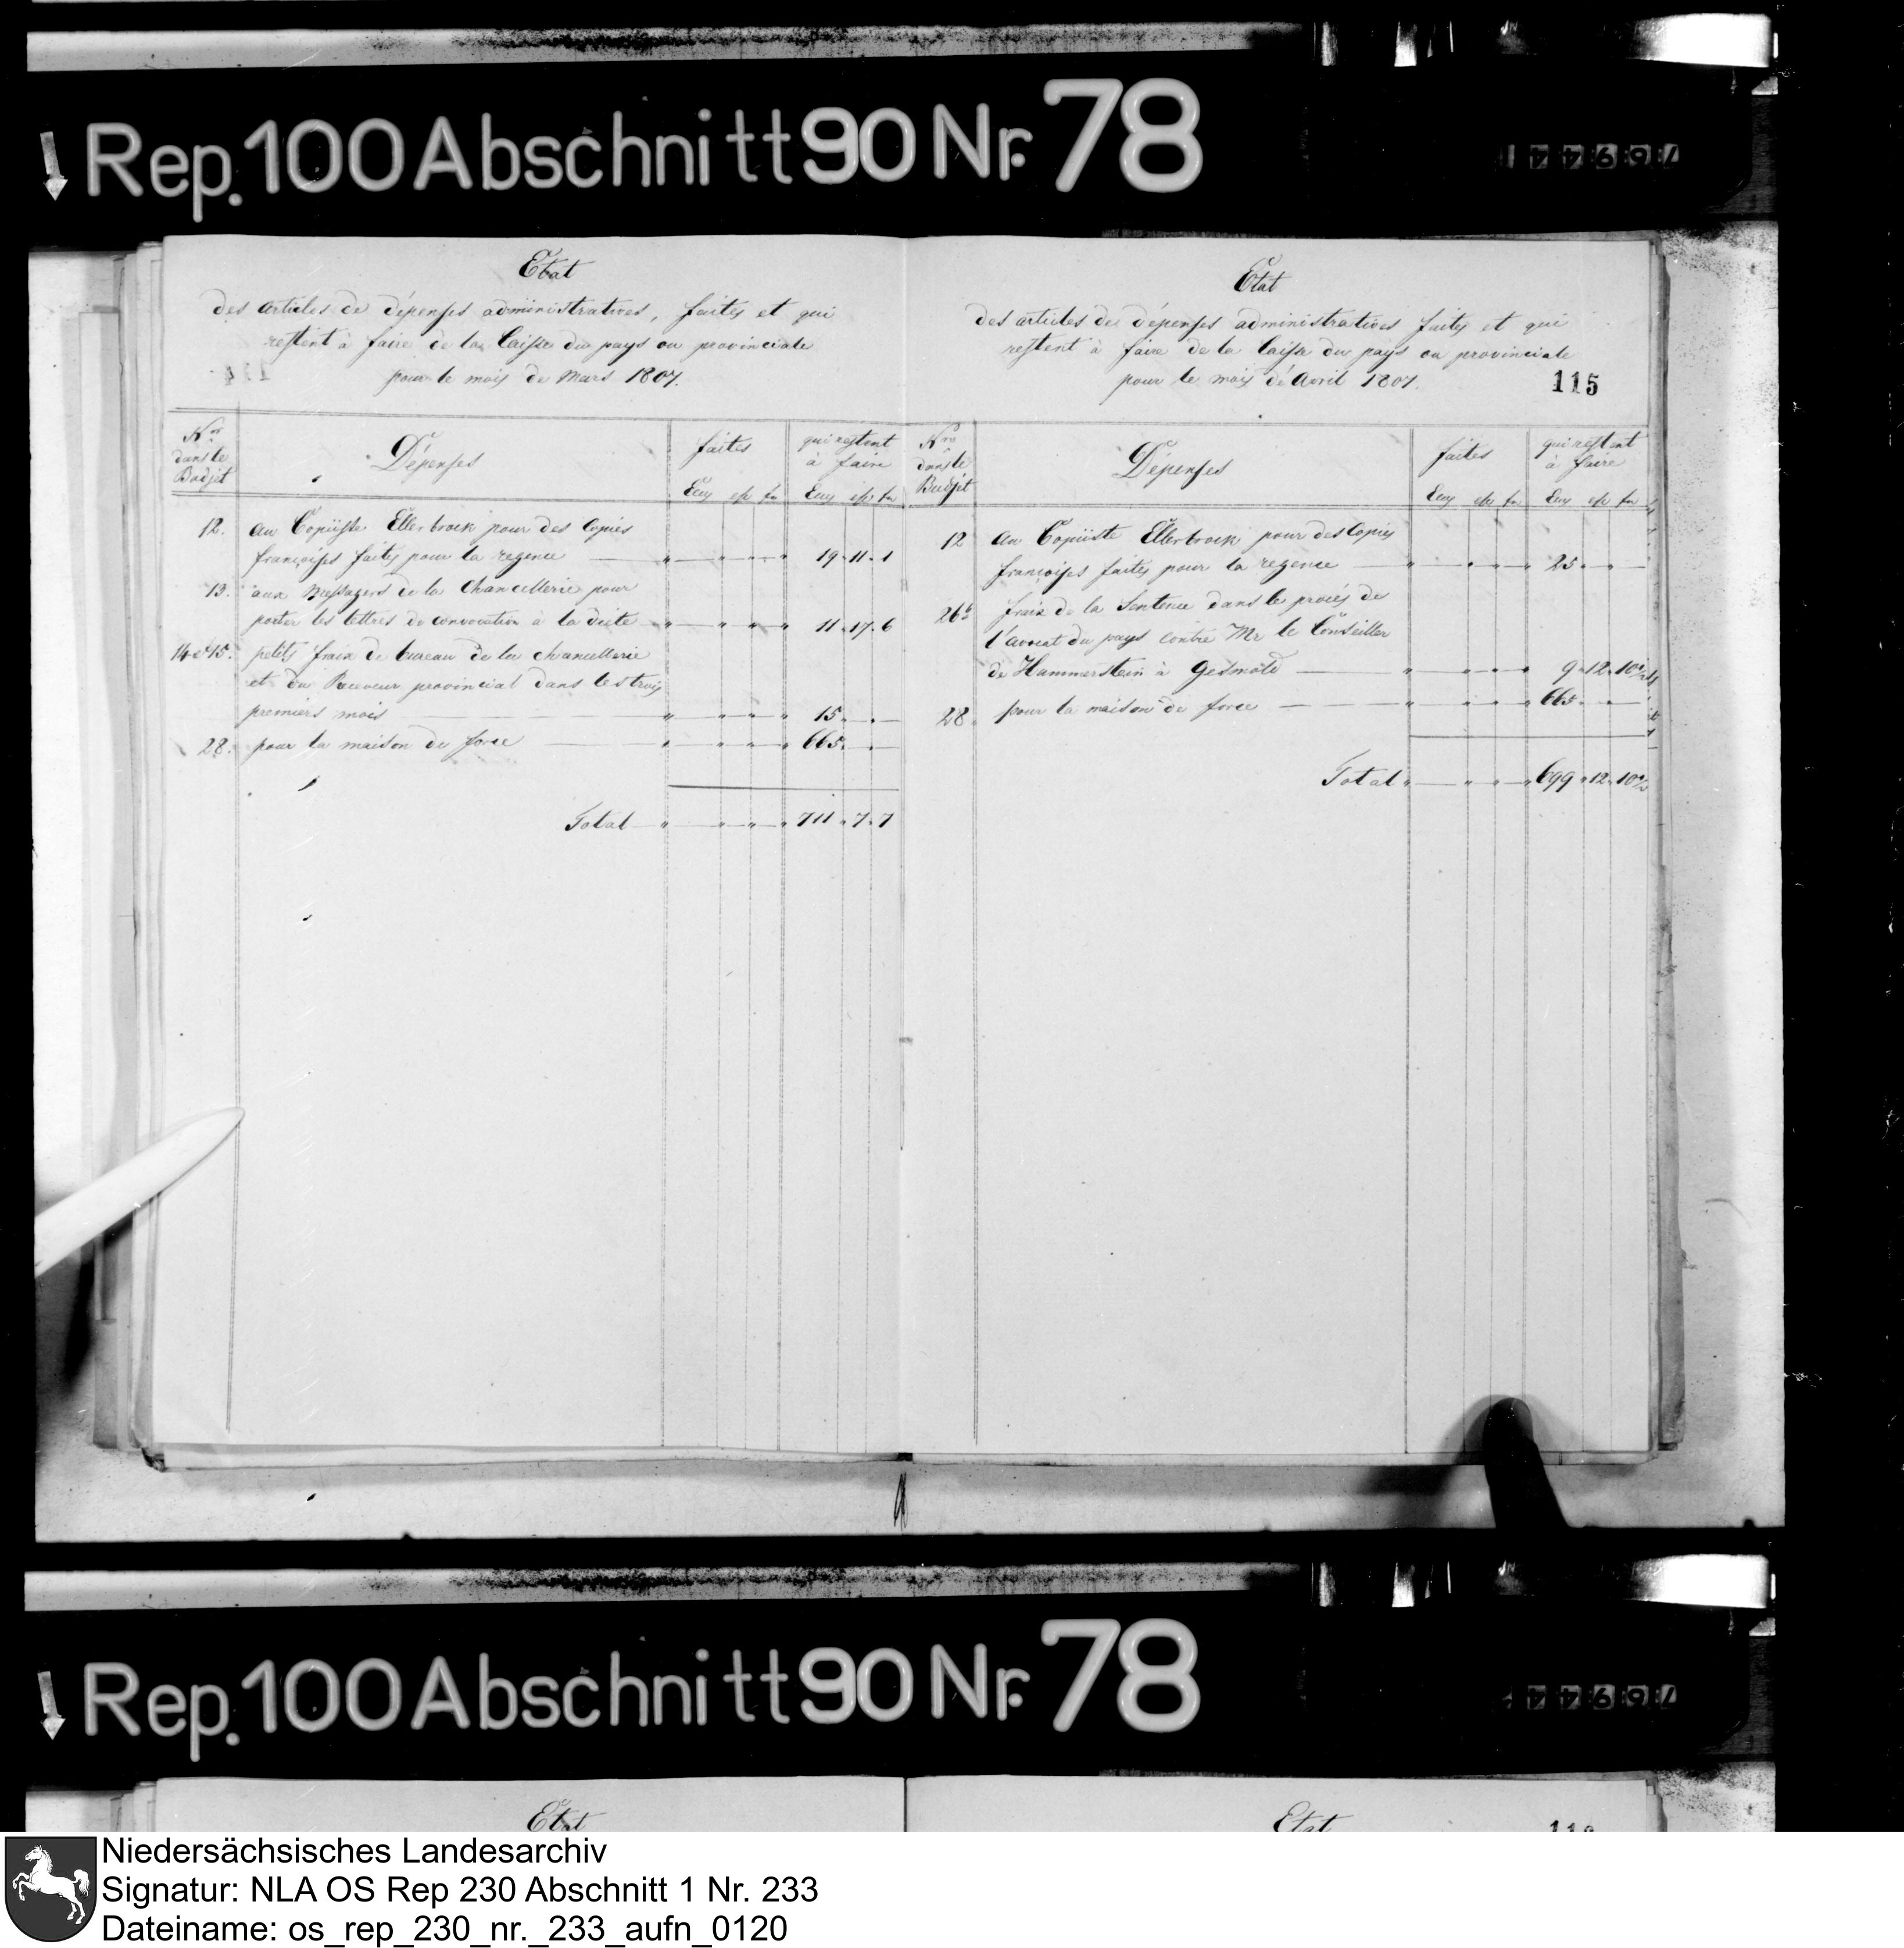 Rep. 100 Abschnitt 90 Nr. 78
Etat
des articles de dépenses administratives, faites et qui
restent à faire de la Caisse du pays ou provinciale
pour le mois de Mars 1807.
Nros dans le Budjet
Dépenses
faites
qui restent à faire
Ecus
Ecus
12. au Copiiste Ellerbrock pour des Copies
françoises faites pour la regence 19 " 11 " 1
13. aux Messagers de la Chancellerie pour
porter les lettres de convocation à la diète 11 " 17 " 6
14 et 15. petits fraix de bureau de la chancellerie
et du Receveur provincial dans les trois
premiers mois 15 " "
28. pour la maison de force 665 " "
Total 711 " 7 " 7
Etat
des articles de dépenses administratives faites et qui
restent à faire de la Caisse du pays ou provinciale
pour le mois d'Avril 1807.
115
Nros dans le Budjet
Dépenses
faites
qui restent à faire
Ecus
Ecus
12 au Copiiste Ellerbrock pour des Copies
françoises faites pour la regence 25 " "
26b fraix de la Sentence dans le procès de
l'avocat du pays contre Mr le Conseiller
de Hammerstein à Gesmold 9 " 12 " 10½
28. pour la maison de force 665 " "
Total 699 " 12 " 10½
Rep. 100 Abschnitt 90 Nr. 78
Etat
Etat
Niedersächsisches Landesarchiv
Signatur: NLA OS Rep 230 Abschnitt 1 Nr. 233
Dateiname: os_rep_230_nr._233_aufn_0120